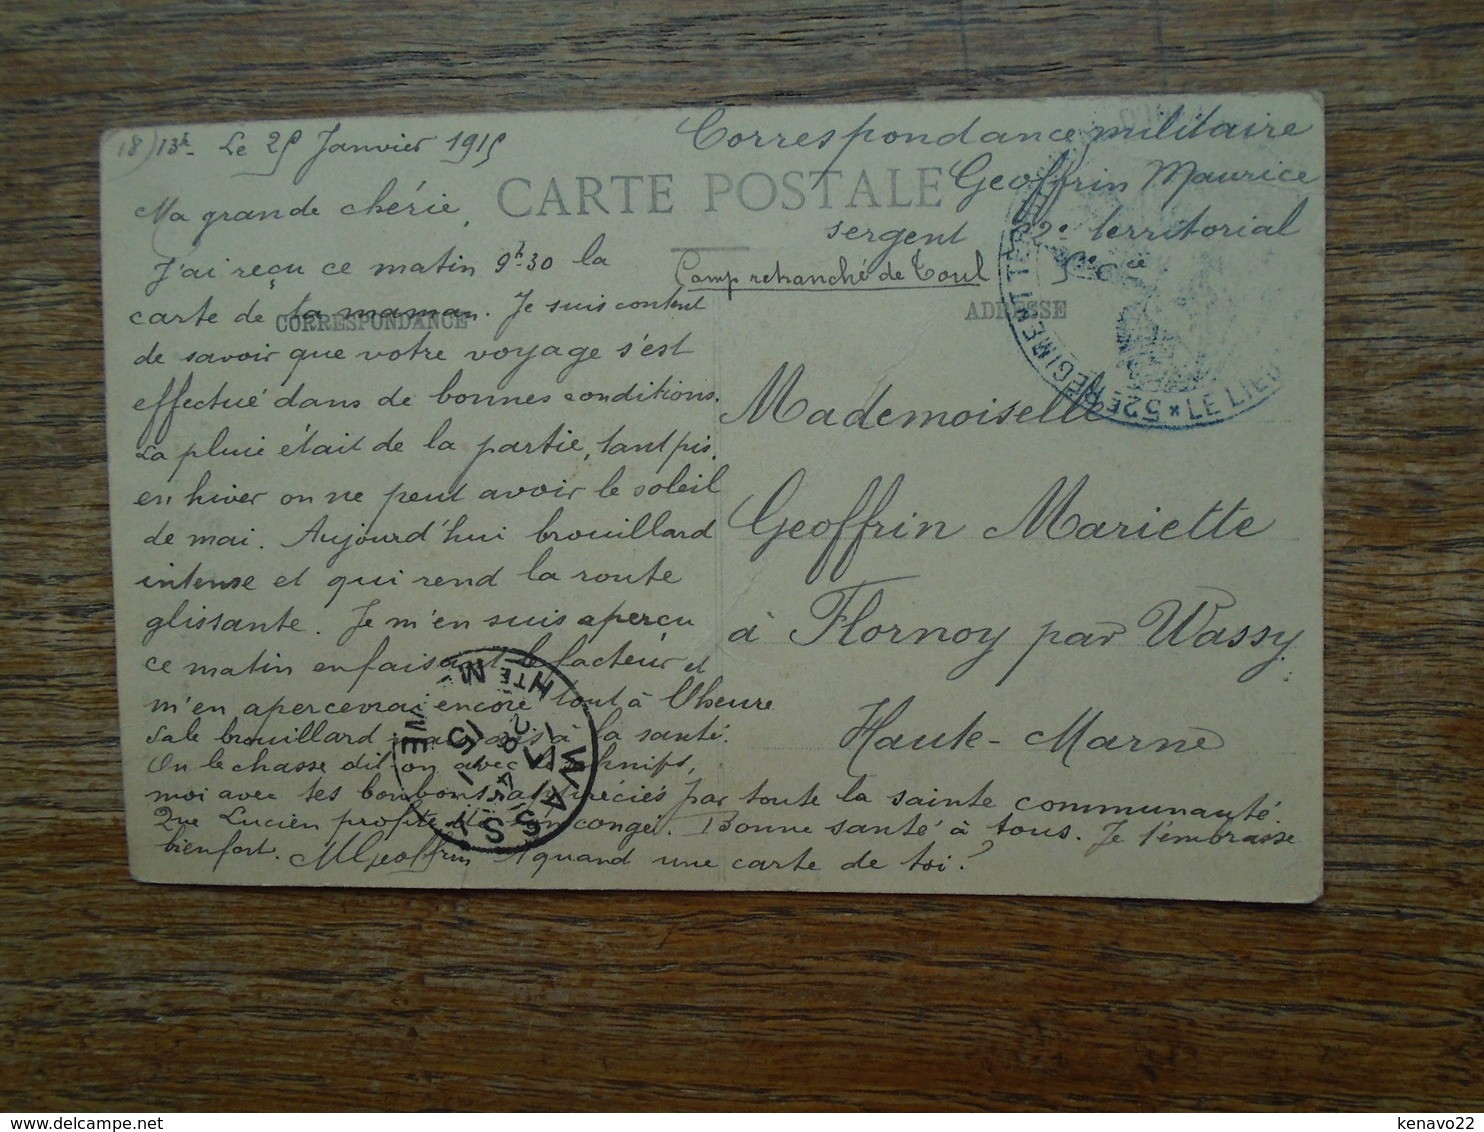 18) 13h- Le 25 Janvier 1915
Ma grande chérie,
J'ai reçu ce matin 9h-30 la
carte de ta maman. Je suis content
de savoir que votre voyage s'est
effectué dans de bonnes conditions.
La pluie était de la partie, tant pis,
en hiver on ne peut avoir le soleil
de mai. Aujourd'hui brouillard
intense et qui rend la route
glissante. Je m'en suis aperçu
ce matin en faisant le facteur et
m'en apercevrai encore tout à l'heure
Sale brouillard mauvais à la santé.
On le chasse dit-on avec le schnifs,
moi avec tes bonbons appréciés par toute la sainte communauté.
Que Lucien profite de son congé. Bonne santé à tous. Je t'embrasse
bien fort. MGeoffrin A quand une carte de toi?
CARTE POSTALE
CORRESPONDANCE
ADRESSE
Correspondance militaire
Geoffrin Maurice
sergent 52e territorial
Camp retranché de Toul
Mademoiselle
Geoffrin Mariette
à Flornoy par Wassy
Haute-Marne
52E REGIMENT TERR
* LE LIEU
WASSY
HTE MARNE
28 - 1
15
kenavo22